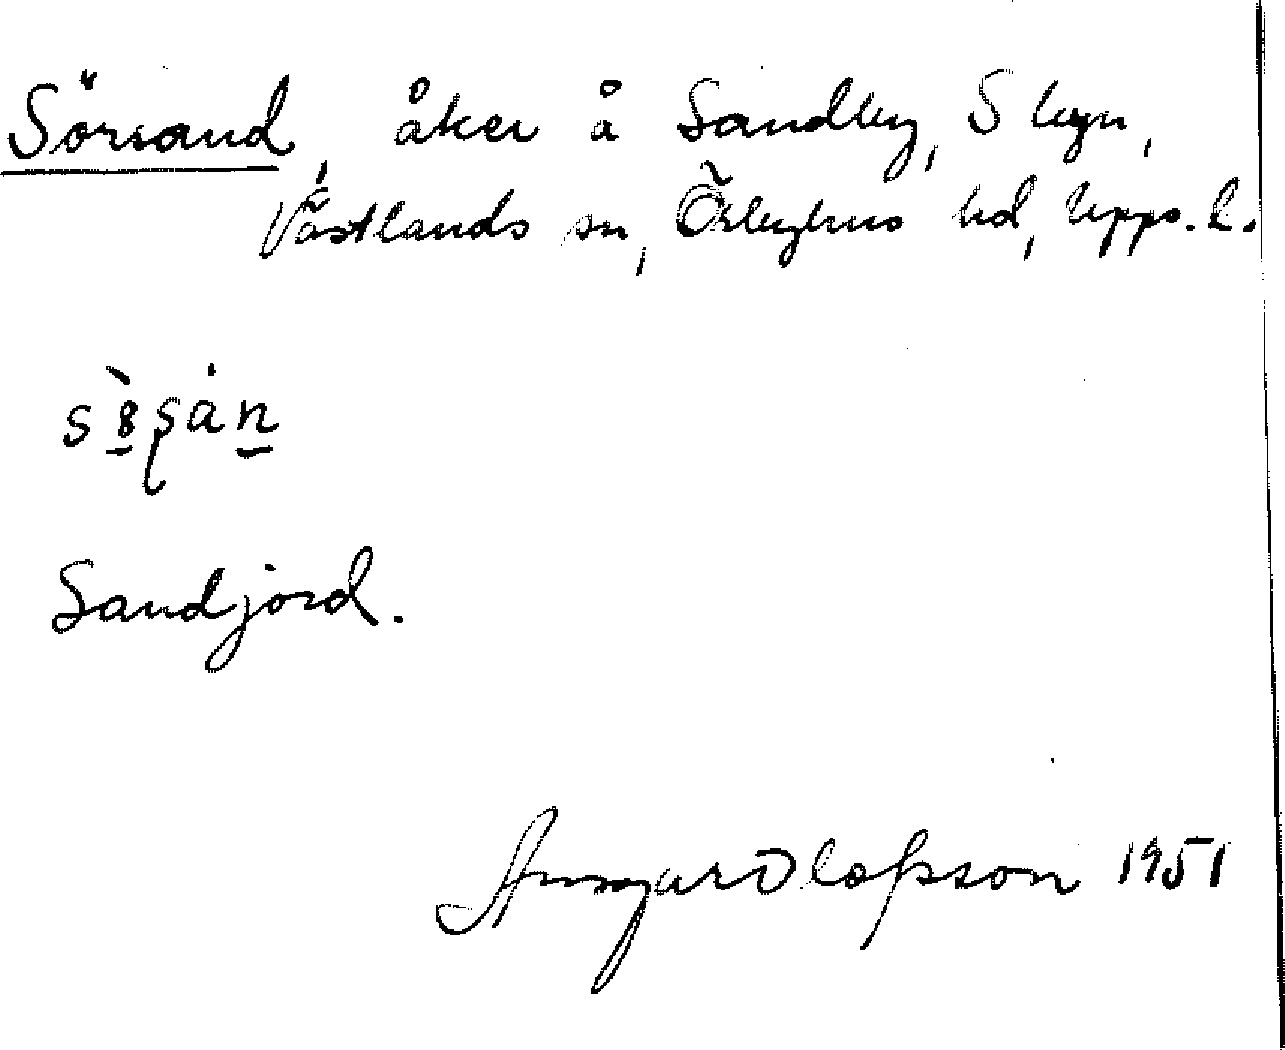 Sörsand, åker å Sandby, S byn,
Västlands sn, Örbyhus hd, Upps. l.
Sandjord.
Ansgar Olofsson 1951